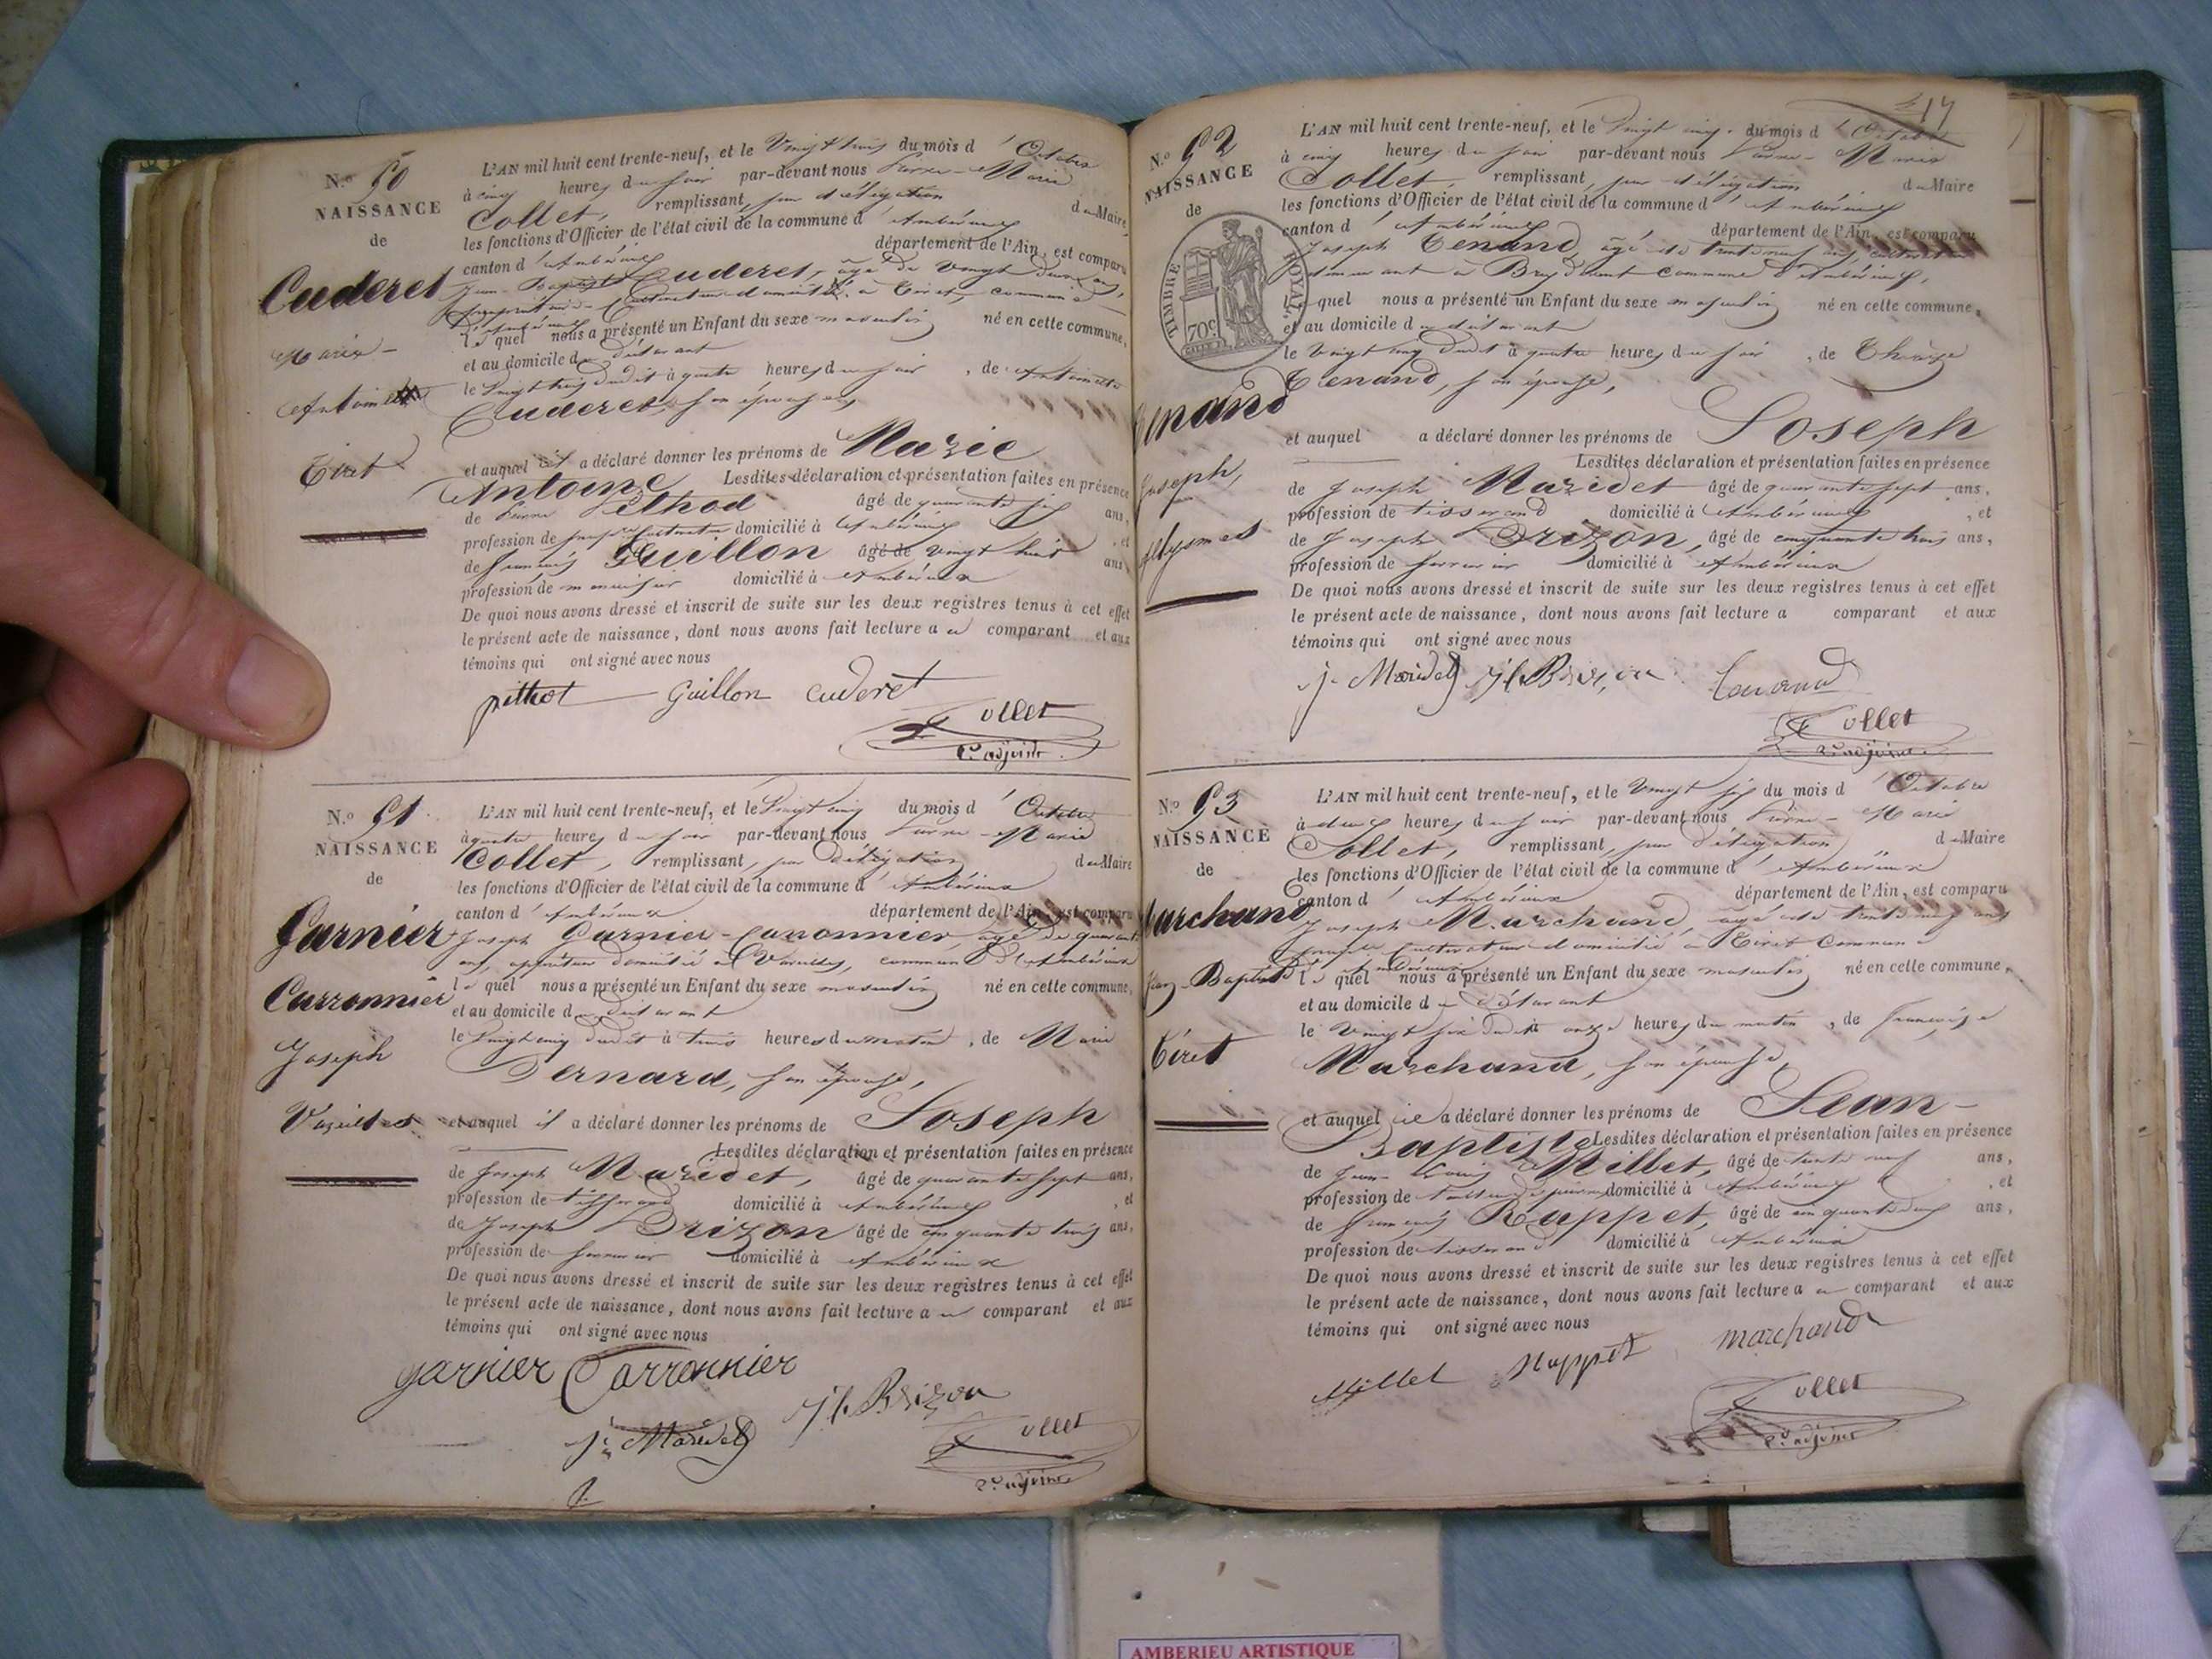 N.º 50
NAISSANCE
de
Cuderet
Marie-
Antoine
Tiret
L'AN mil huit cent trente-neuf, et le Vingt trois du mois d'Octobre
à cinq heures du soir par-devant nous Pierre-Marie
Collet, remplissant, par délégation du Maire,
les fonctions d'Officier de l'état civil de la commune d'Ambérieux
canton d'Ambérieux département de l'Ain, est comparu
Jean-Baptiste Cuderet, âgé de Vingt deux ans,
propriétaire-Cultivateur domicilié à Tiret, commune
d'Ambérieux
lequel nous a présenté un Enfant du sexe masculin né en cette commune,
et au domicile du déclarant
le Vingt trois dudit à quatre heures du soir, de Antoinette
Cuderet, son épouse,
et auquel il a déclaré donner les prénoms de Marie
Antoine Lesdites déclaration et présentation faites en présence
de Pierre Pithod âgé de quarante six ans,
profession de prop.re Cultivateur domicilié à Ambérieux, et
de francois Guillon âgé de vingt huit ans
profession de menuisier domicilié à Ambérieux
De quoi nous avons dressé et inscrit de suite sur les deux registres tenus à cet effet
le présent acte de naissance, dont nous avons fait lecture au comparant et aux
témoins qui ont signé avec nous
pithot Guillon Cuderet
Collet
2.e adjoint
N.º 51
NAISSANCE
de
Garnier
Carronnier
Joseph
Vareilles
L'AN mil huit cent trente-neuf, et le Vingt cinq du mois d'Octobre
à quatre heures du soir par-devant nous Pierre-Marie
Collet, remplissant, par délégation du Maire
les fonctions d'Officier de l'état civil de la commune d'Ambérieux
canton d'Ambérieux département de l'Ain, est comparu
Joseph Garnier-Carronnier, âgé de quarante
ans, domicilié à Vareilles, commune d'Ambérieux
lequel nous a présenté un Enfant du sexe masculin né en cette commune,
et au domicile du déclarant
le Vingt cinq dudit à trois heures du matin, de Marie
Bernard, son épouse,
et auquel il a déclaré donner les prénoms de Joseph
Lesdites déclaration et présentation faites en présence
de Joseph Maridet, âgé de quarante sept ans,
profession de tisserand domicilié à Ambérieux, et
de Joseph Brizon âgé de cinquante trois ans,
profession de serrurier domicilié à Ambérieux
De quoi nous avons dressé et inscrit de suite sur les deux registres tenus à cet effet
le présent acte de naissance, dont nous avons fait lecture au comparant et aux
témoins qui ont signé avec nous
garnier Carronnier
j.h Brizon
j. Maridet
Collet
2.e adjoint
17
N.º 52
NAISSANCE
de
TIMBRE ROYAL
70c
Tenand
Joseph,
Allymes
L'AN mil huit cent trente-neuf, et le Vingt cinq du mois d'Octobre
à cinq heures du soir par-devant nous Pierre-Marie
Collet, remplissant, par délégation du Maire
les fonctions d'Officier de l'état civil de la commune d'Ambérieux
canton d'Ambérieux département de l'Ain, est comparu
Joseph Tenand, âgé de trente neuf ans, cultivateur
demeurant à Breydevent commune d'Ambérieux,
lequel nous a présenté un Enfant du sexe masculin né en cette commune,
et au domicile du déclarant
le Vingt cinq dudit à quatre heures du soir, de Thérèze
Tenand, son épouse,
et auquel a déclaré donner les prénoms de Joseph
Lesdites déclaration et présentation faites en présence
de Joseph Maridet âgé de quarante sept ans,
profession de tisserand domicilié à Ambérieux, et
de Joseph Brizon, âgé de cinquante trois ans,
profession de serrurier domicilié à Ambérieux
De quoi nous avons dressé et inscrit de suite sur les deux registres tenus à cet effet
le présent acte de naissance, dont nous avons fait lecture a comparant et aux
témoins qui ont signé avec nous
j. Maridet j.h Brizon Tenand
Collet
2.e adjoint
N.º 53
NAISSANCE
de
Marchand
Jean-Baptiste
Tiret
L'AN mil huit cent trente-neuf, et le Vingt six du mois d'Octobre
à deux heures du soir par-devant nous Pierre-Marie
Collet, remplissant, par délégation du Maire
les fonctions d'Officier de l'état civil de la commune d'Ambérieux
canton d'Ambérieux département de l'Ain, est comparu
Joseph Marchand, âgé de trente neuf ans
prop.re Cultivateur domicilié à Tiret Commune
d'Ambérieux
lequel nous a présenté un Enfant du sexe masculin né en cette commune,
et au domicile du déclarant
le Vingt six dudit à onze heures du matin, de françoise
Marchand, son épouse,
et auquel il a déclaré donner les prénoms de Jean-
Baptiste Lesdites déclaration et présentation faites en présence
de Jean-Louis Millet, âgé de trente neuf ans,
profession de tailleur de pierres domicilié à Ambérieux, et
de francois Ruppet, âgé de cinquante deux ans,
profession de tisserand domicilié à Ambérieux
De quoi nous avons dressé et inscrit de suite sur les deux registres tenus à cet effet
le présent acte de naissance, dont nous avons fait lecture au comparant et aux
témoins qui ont signé avec nous
Millet Ruppet marchand
Collet
2.e adjoint
AMBERIEU ARTISTIQUE